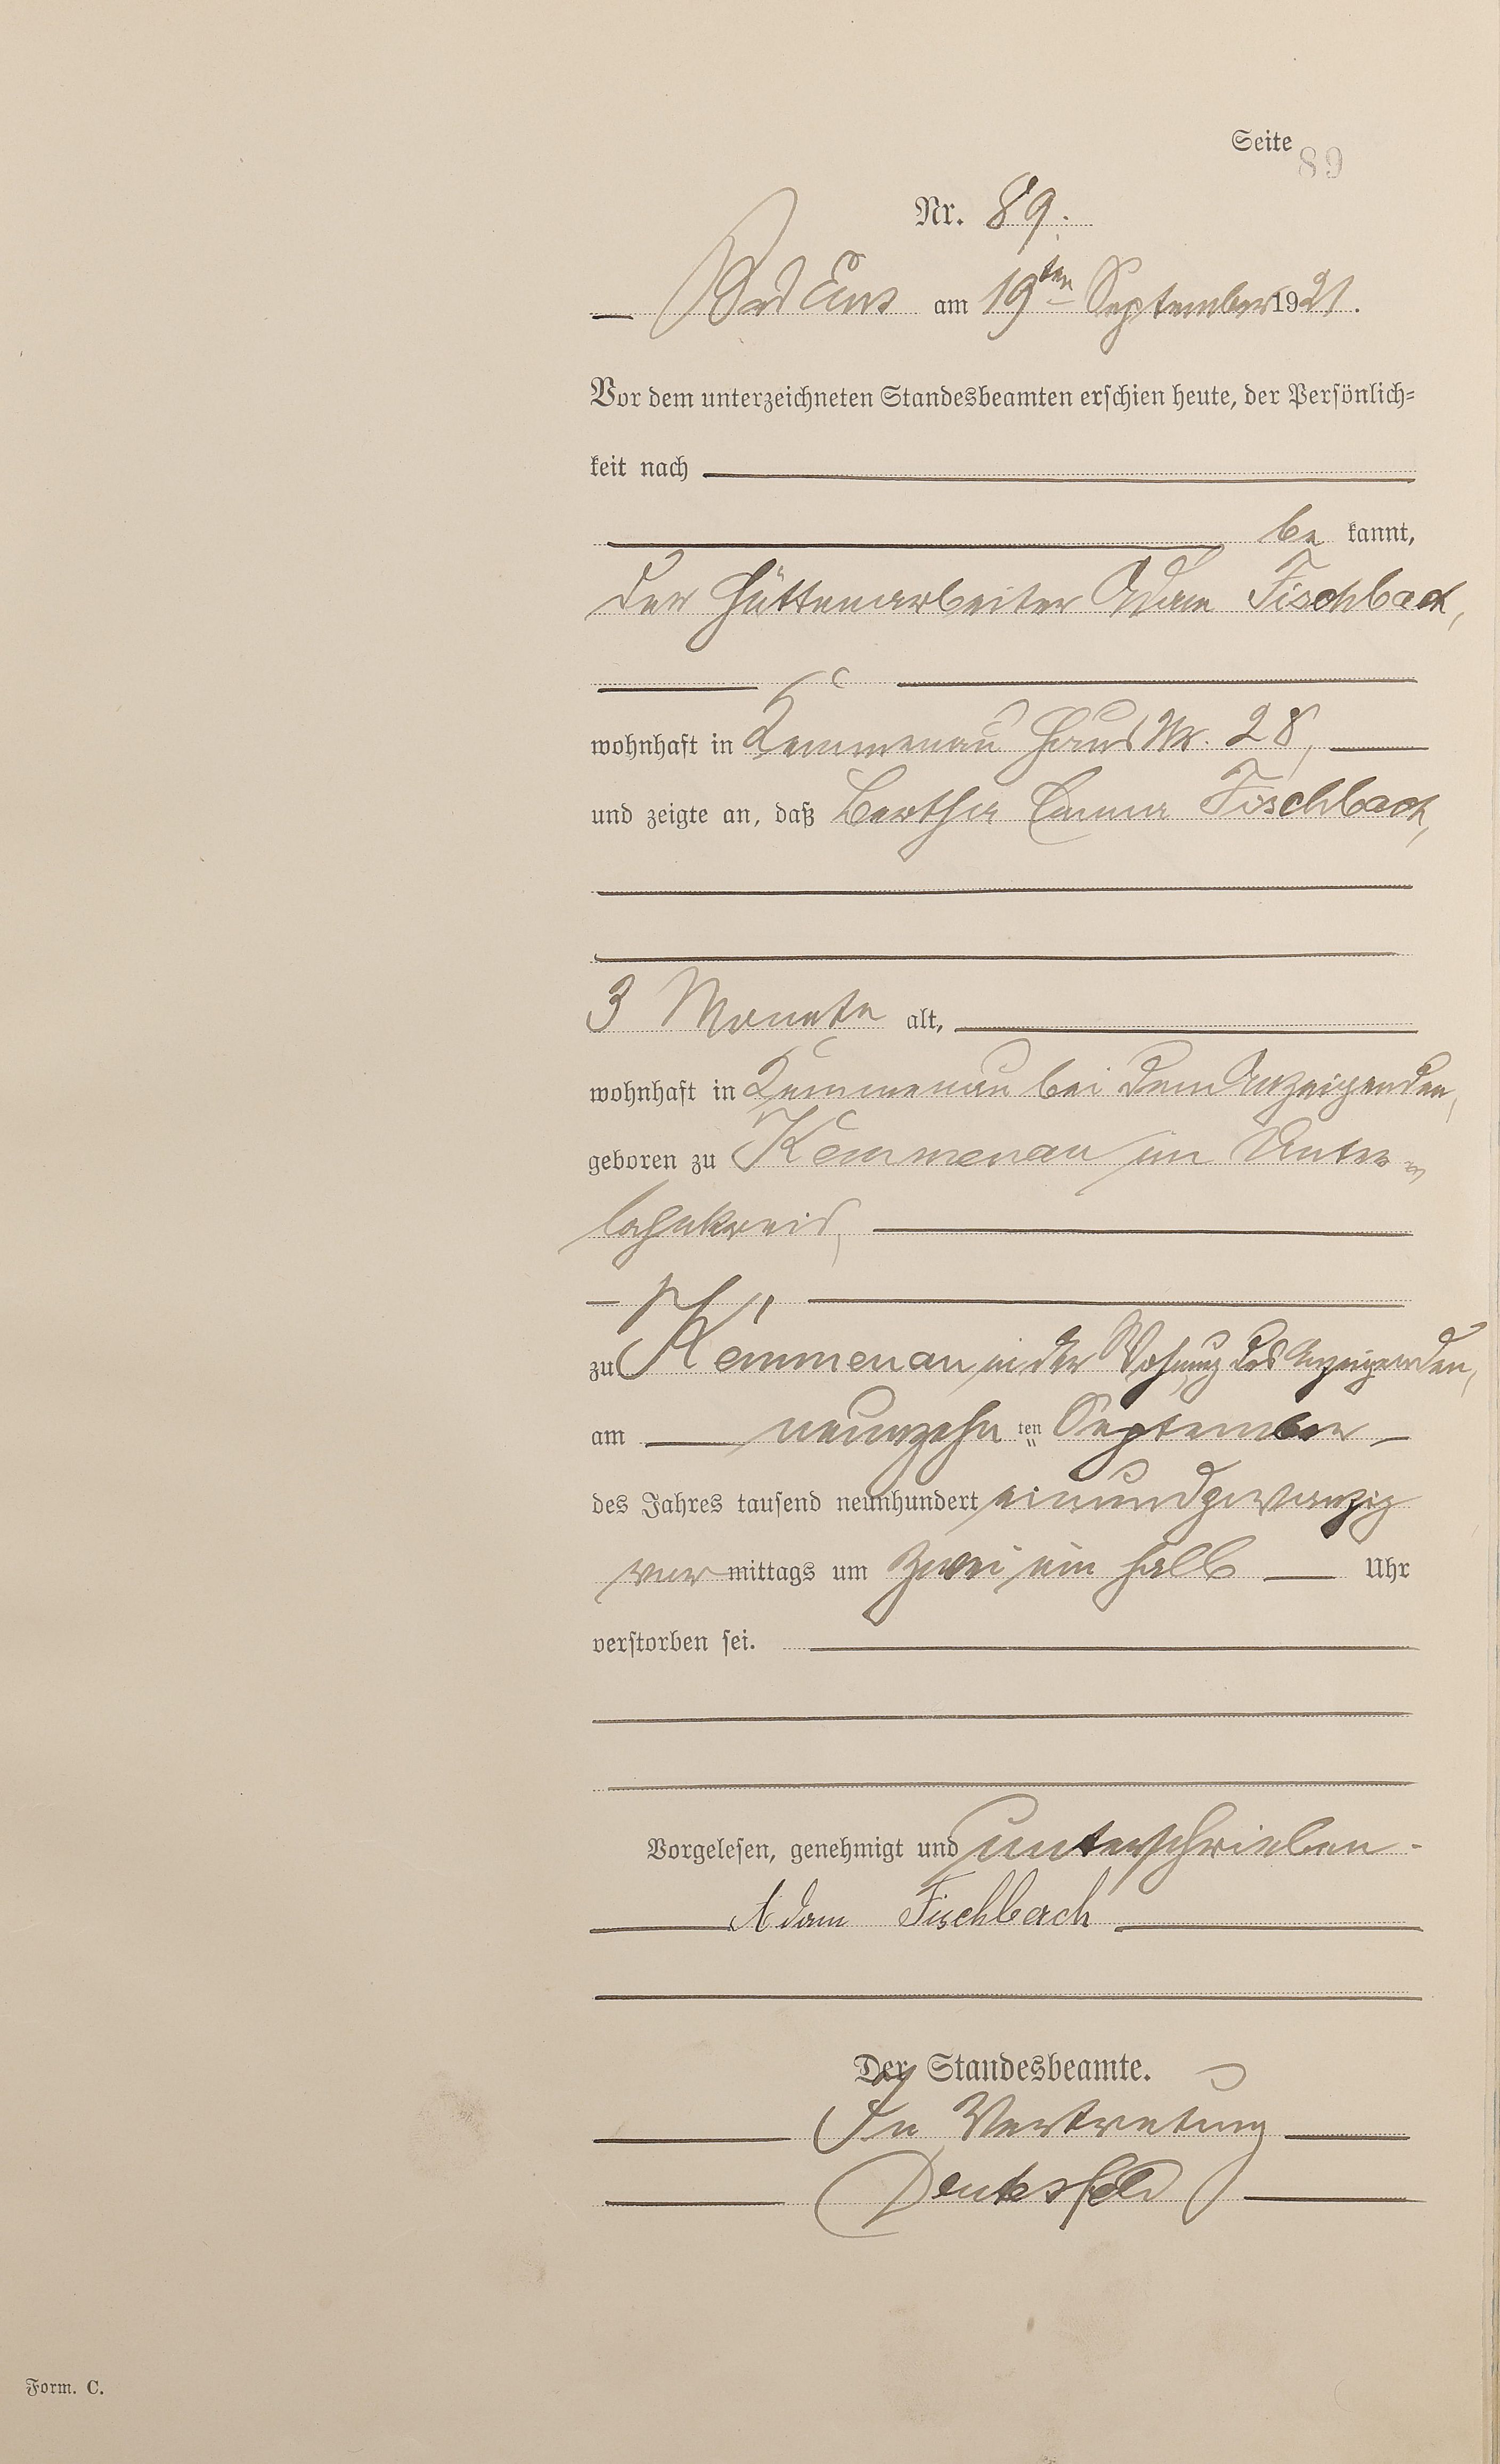 Seite 89
Nr. 89.
Bad Ems am 19ten September 1921.
Vor dem unterzeichneten Standesbeamten erschien heute, der Persönlich-
keit nach
be kannt,
der Hüttenarbeiter Adam Fischbach,
wohnhaft in Kemmenau Haus Nr. 28,
und zeigte an, daß Bertha Emma Fischbach,
3 Monate alt,
wohnhaft in Kemmenau bei dem Anzeigenden,
geboren zu Kemmenau im Unter-
lahnkreis,
zu Kemmenau in der Wohnung des Anzeigenden,
am neunzehn ten September
des Jahres tausend neunhundert einundzwanzig
vor mittags um zwei ein halb Uhr
verstorben sei.
Vorgelesen, genehmigt und unterschrieben.
Adam Fischbach
Der Standesbeamte.
In Vertretung
Form. C.